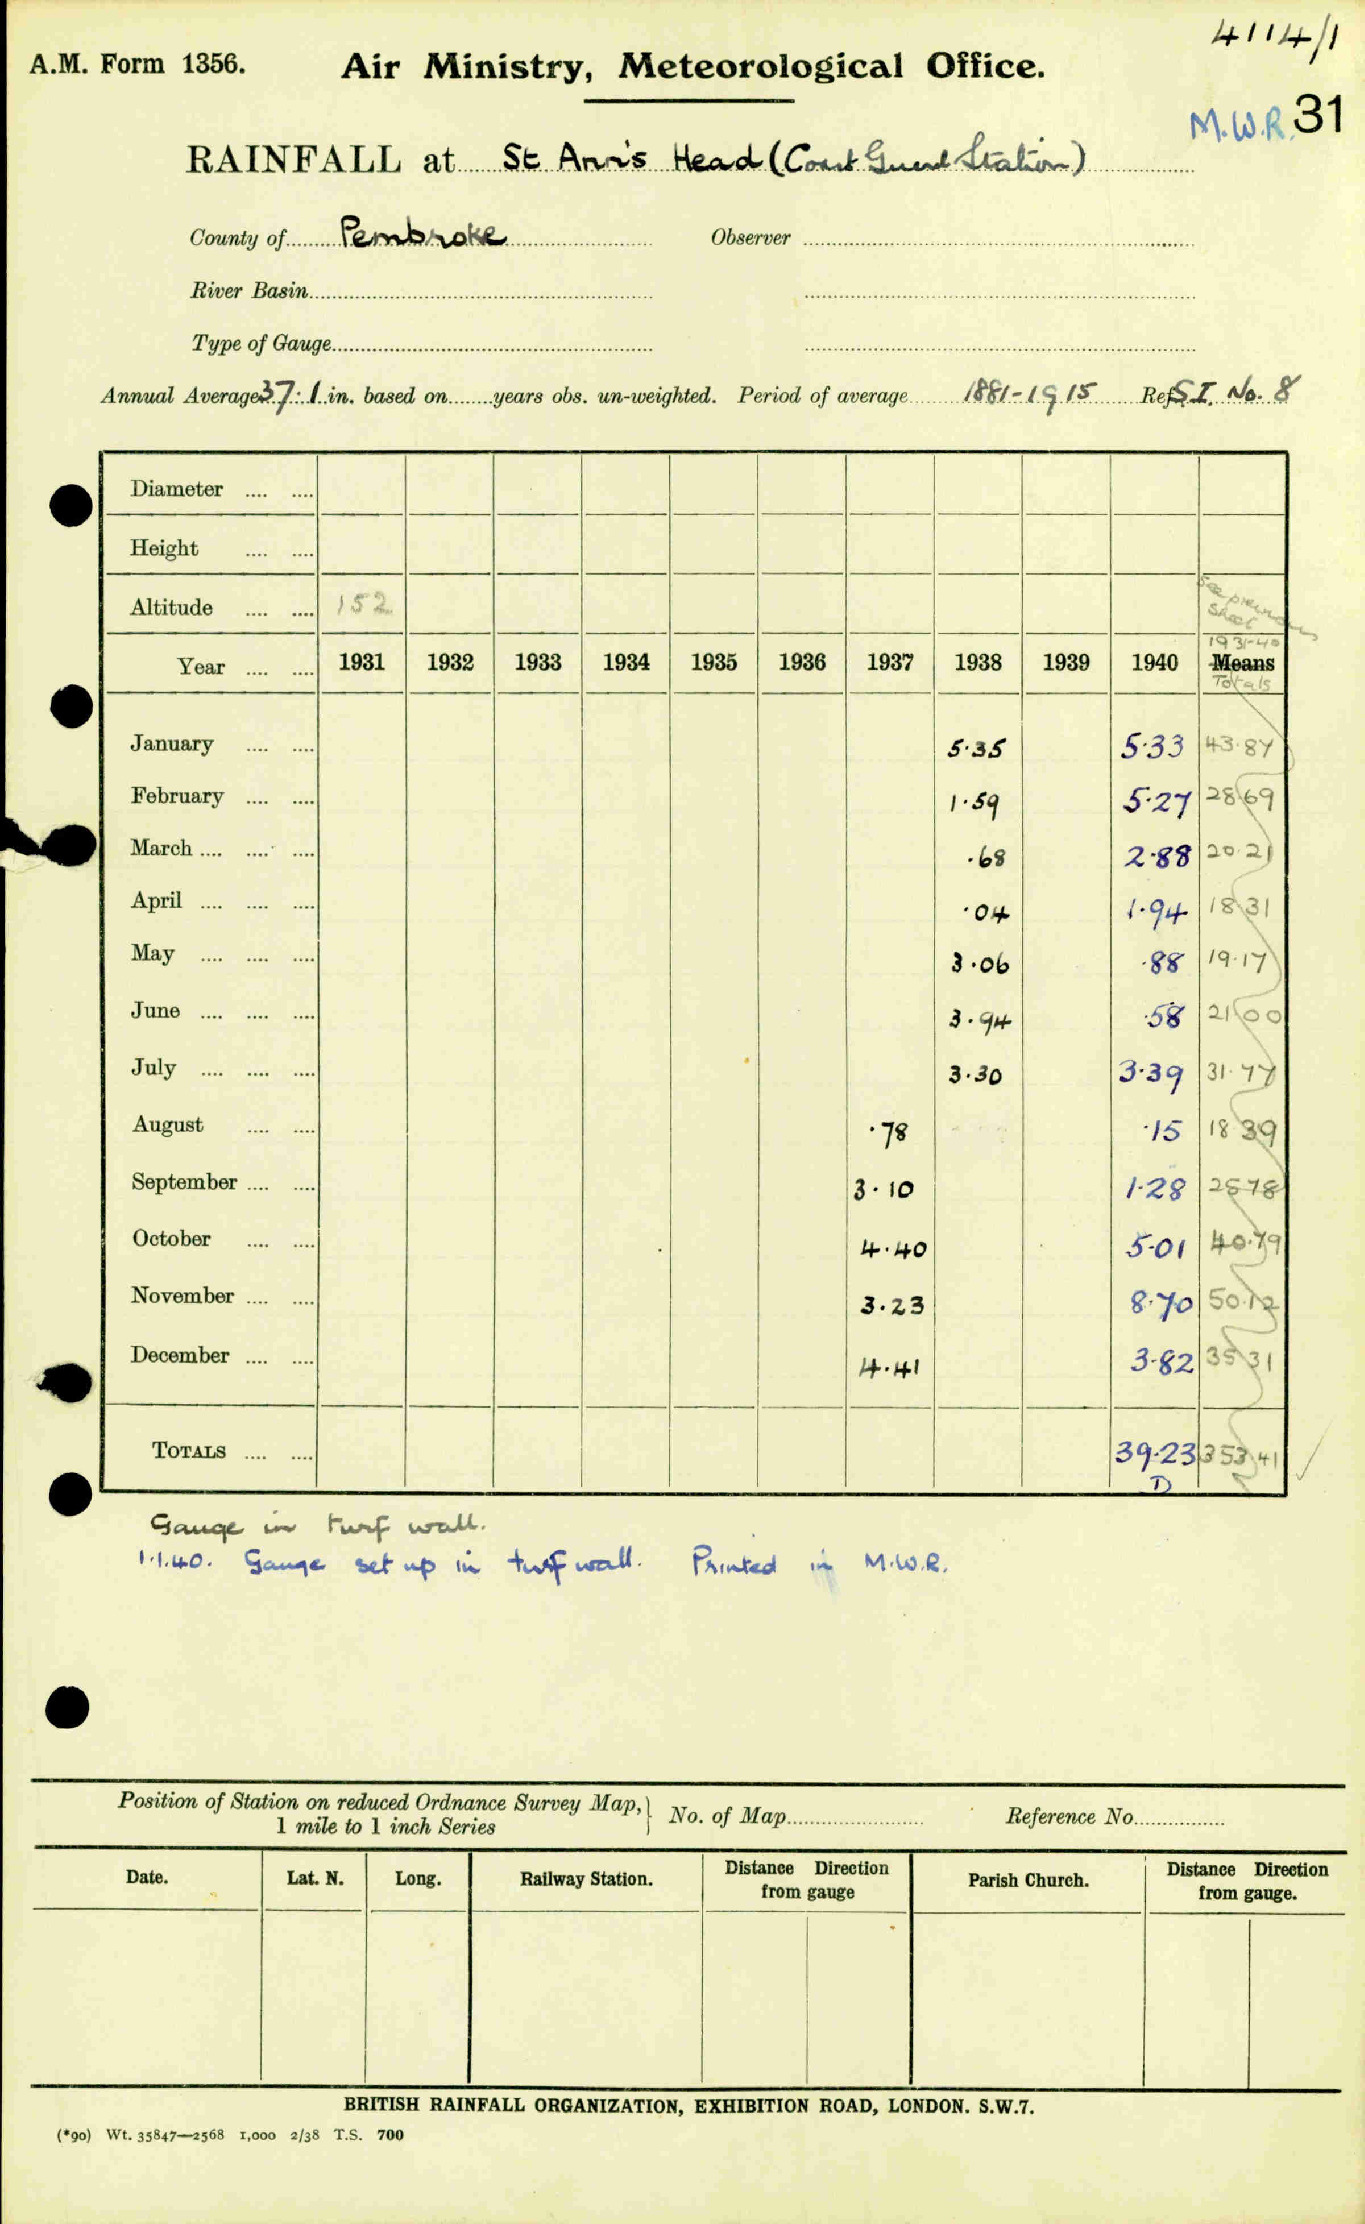 4114/1
A.M. Form 1356. Air Ministry, Meteorological Office.
M.W.R. 31
RAINFALL at St Ann's Head (Coast Guard Station)
County of Pembroke Observer
River Basin
Type of Gauge
Annual Average 37.1 in. based on ........ years obs. un-weighted. Period of average 1881-1915 Ref. S.I. No. 8
Diameter .... ....
Height .... ....
Altitude .... .... 152
See previous
sheet
1931-40
Year .... .... 1931 1932 1933 1934 1935 1936 1937 1938 1939 1940 Means
Totals
January .... .... 5.35 5.33 43.87
February .... .... 1.59 5.27 28.69
March .... .... .... .68 2.88 20.21
April .... .... .... .04 1.94 18.31
May .... .... .... 3.06 .88 19.17
June .... .... .... 3.94 .58 21.00
July .... .... .... 3.30 3.39 31.77
August .... .... .78 .15 18.39
September .... .... 3.10 1.28 25.78
October .... .... 4.40 5.01 40.79
November .... .... 3.23 8.70 50.12
December .... .... 4.41 3.82 35.31
TOTALS .... .... 39.23 353.41
D
Gauge in turf wall.
1.1.40. Gauge set up in turf wall. Printed in M.W.R.
Position of Station on reduced Ordnance Survey Map, No. of Map Reference No.
1 mile to 1 inch Series
Date. Lat. N. Long. Railway Station. Distance Direction from gauge Parish Church. Distance Direction from gauge.
BRITISH RAINFALL ORGANIZATION, EXHIBITION ROAD, LONDON. S.W.7.
(*90) Wt. 35847—2568 1,000 2/38 T.S. 700